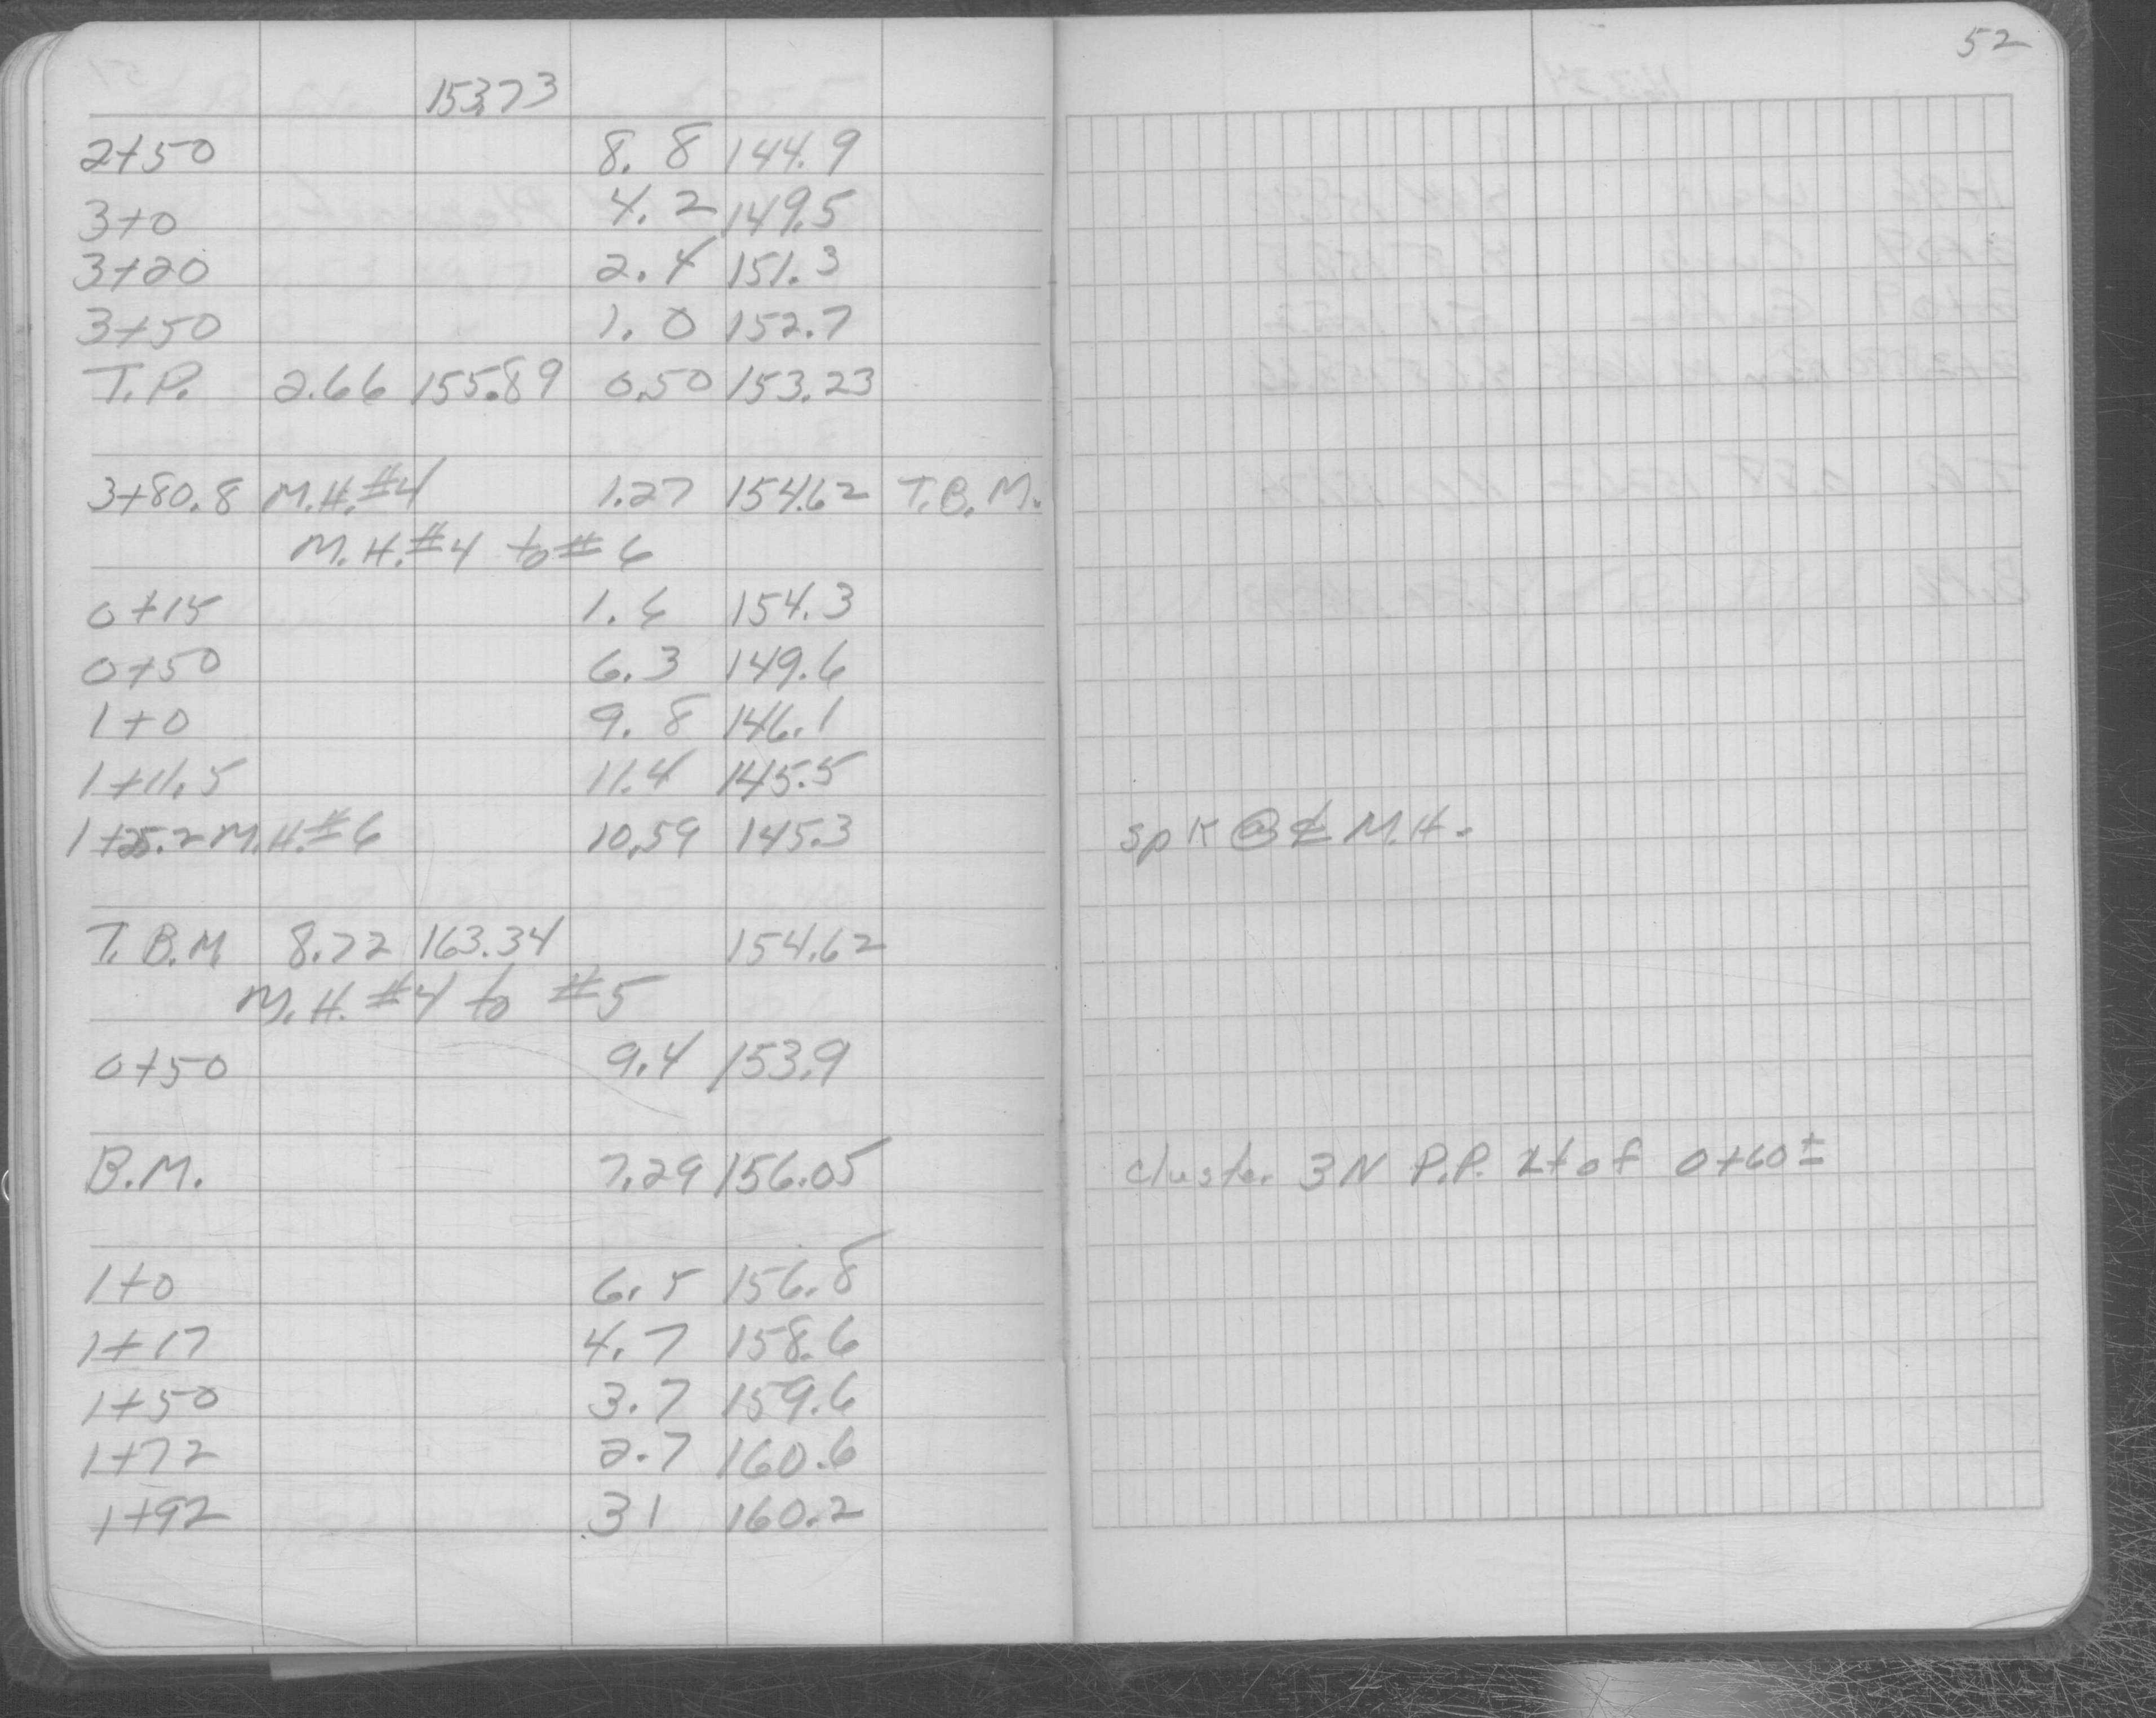 52
153.73
2+50 8.8 144.9
3+0 4.2 149.5
3+20 2.4 151.3
3+50 1.0 152.7
T.P. 2.66 155.89 0.50 153.23
3+80.8 M.H.#4 1.27 154.62 T.B.M.
M.H.#4 to #6
0+15 1.6 154.3
0+50 6.3 149.6
1+0 9.8 146.1
1+11.5 11.4 145.5
1+25.2 M.H.#6 10.59 145.3 spk @ ℄ M.H.
T.B.M 8.72 163.34 154.62
M.H. #4 to #5
0+50 9.4 153.9
B.M. 7.29 156.05 cluster 3N P.P. Lt of 0+60±
1+0 6.5 156.8
1+17 4.7 158.6
1+50 3.7 159.6
1+72 2.7 160.6
1+92 31 160.2